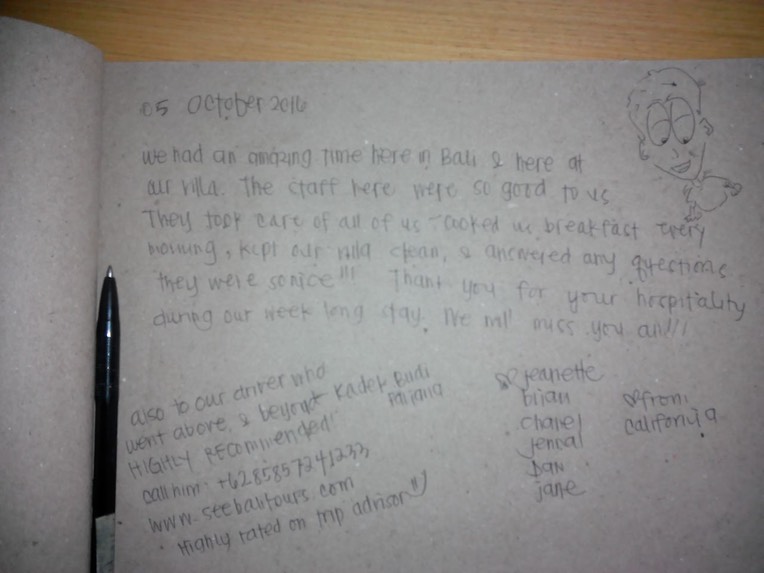 05 October 2016
we had an amazing time here in Bali & here at
our villa. The staff here were so good to us
They took care of all of us - cooked us breakfast every
morning, kept our villa clean, & answered any questions
they were so nice!!! Thank you for your hospitality
during our week long stay. We will miss you all!!!
also to our driver who
went above & beyond Kadek Budi
HIGHLY RECOMMENDED!
call him: +6285857241233
www.seebalitours.com
Highly rated on trip advisor
Jeanette
brian
chanel
jenna
Dan
jane
from
california